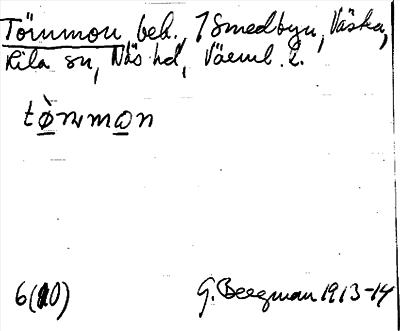 Törnmon beb., 7 Smedbyn, Västra,
Kila sn, Näs hd, Värml. l.
tö̀rnmon
6(10) G. Bergman 1913-14